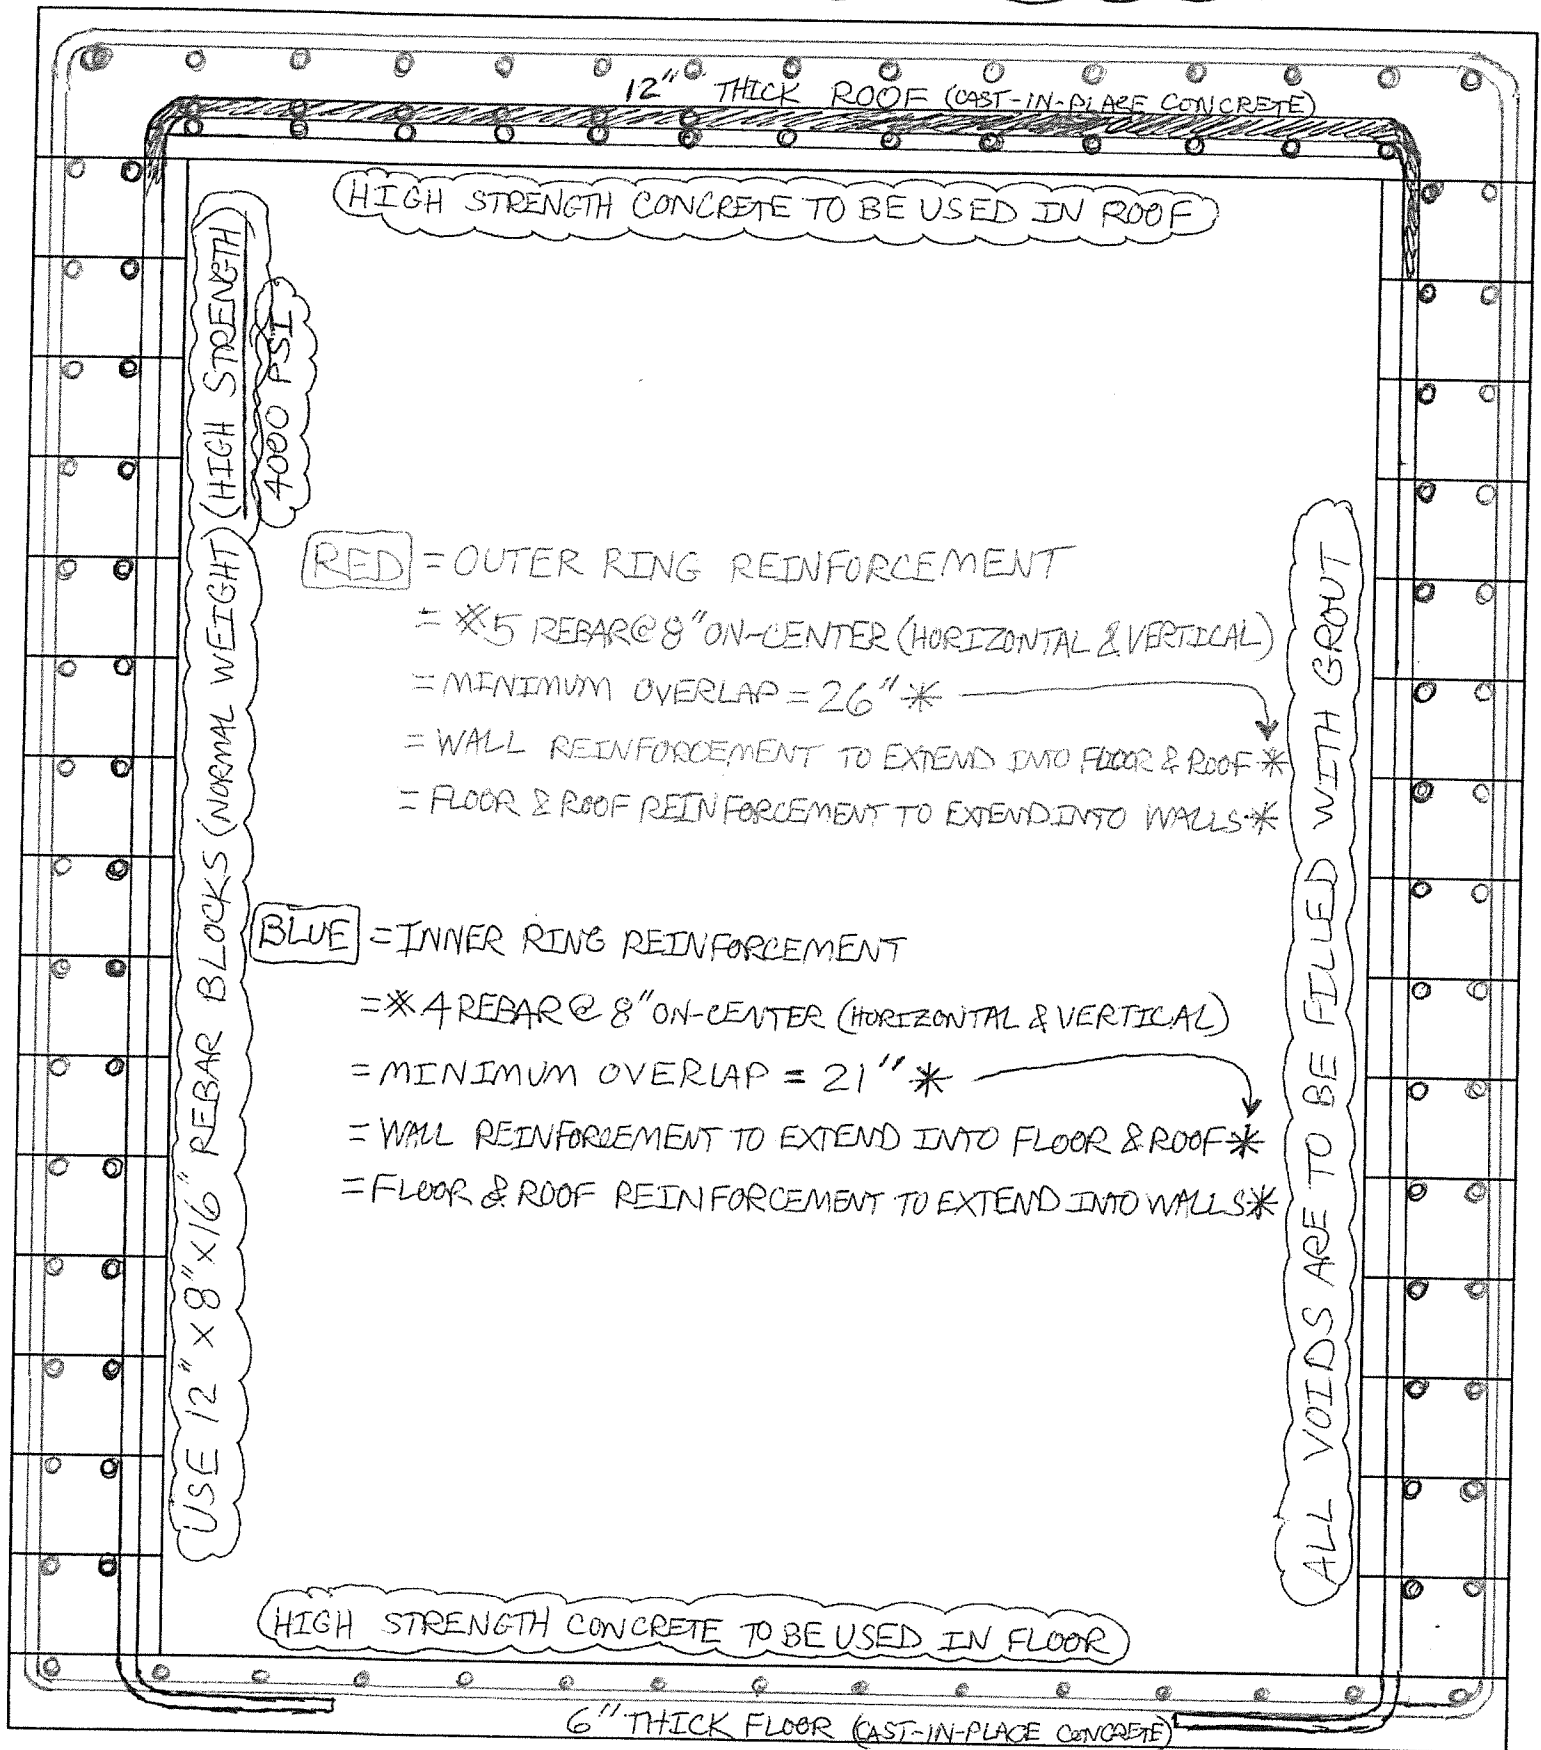 12" THICK ROOF (CAST-IN-PLACE CONCRETE)
HIGH STRENGTH CONCRETE TO BE USED IN ROOF
USE 12" X 8" X 16" REBAR BLOCKS (NORMAL WEIGHT) (HIGH STRENGTH
4000 PSI
RED = OUTER RING REINFORCEMENT
= #5 REBAR @ 8" ON-CENTER (HORIZONTAL & VERTICAL)
= MINIMUM OVERLAP = 26" *
= WALL REINFORCEMENT TO EXTEND INTO FLOOR & ROOF *
= FLOOR & ROOF REINFORCEMENT TO EXTEND INTO WALLS *
BLUE = INNER RING REINFORCEMENT
= #4 REBAR @ 8" ON-CENTER (HORIZONTAL & VERTICAL)
= MINIMUM OVERLAP = 21" *
= WALL REINFORCEMENT TO EXTEND INTO FLOOR & ROOF *
= FLOOR & ROOF REINFORCEMENT TO EXTEND INTO WALLS *
ALL VOIDS ARE TO BE FILLED WITH GROUT
HIGH STRENGTH CONCRETE TO BE USED IN FLOOR
6" THICK FLOOR (CAST-IN-PLACE CONCRETE)